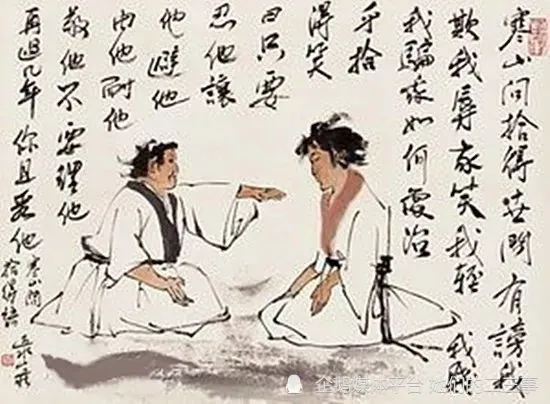 寒山问拾得世间有谤我
欺我辱我笑我轻我贱
我骗我如何處治
乎拾
得笑
曰只要
忍他讓
他避他
由他耐他
敬他不要理他
再過几年你且看他
寒山问
拾得語
企鹅媒体平台